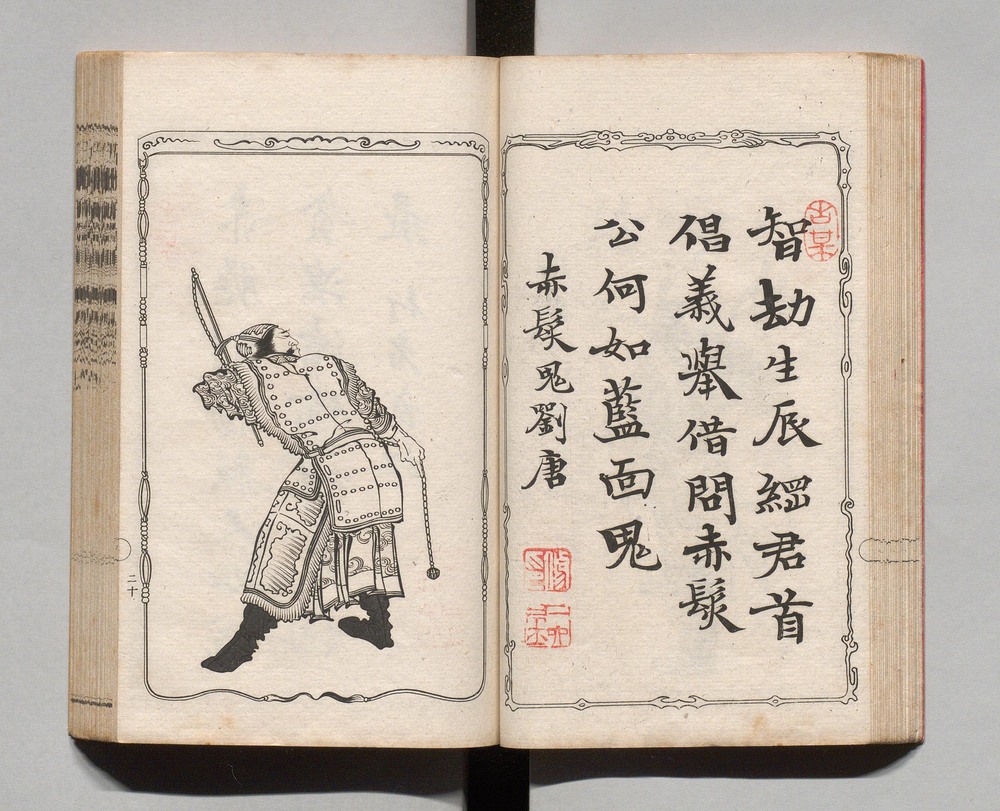 智劫生辰綱君首
倡義舉借問赤髮
公何如藍面鬼
赤髮鬼劉唐
二十